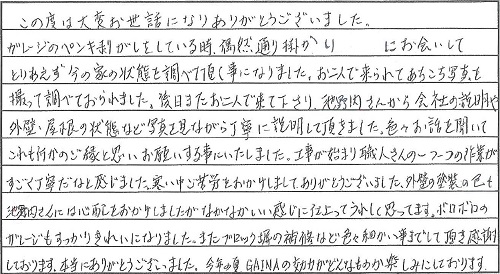 この度は大変お世話になりありがとうございました。
ガレージのペンキ剥がしをしている時、偶然通り掛かり　　　にお会いして
とりあえず今の家の状態を調べて頂く事になりました。お二人で来られてあちこち写真を
撮って調べておられました。後日またお二人で来て下さり、池野内さんから会社の説明や
外壁・屋根の状態など写真を見ながら丁寧に説明して頂きました。色々お話を聞いて
これも何かのご縁と思いお願いする事にいたしました。工事が始まり職人さんの一つ一つの作業が
すごく丁寧だなと感じました。寒い中ご苦労をおかけしましてありがとうございました。外壁の塗装の色も
池野内さんには心配をおかけしましたがなかなかいい感じに仕上ってうれしく思ってます。ボロボロの
ガレージもすっかりきれいになりました。またブロック塀の補修など色々細かい事までして頂き感謝
しております。本当にありがとうございました。今年の夏GAINAの効力がどんなものか楽しみにしております